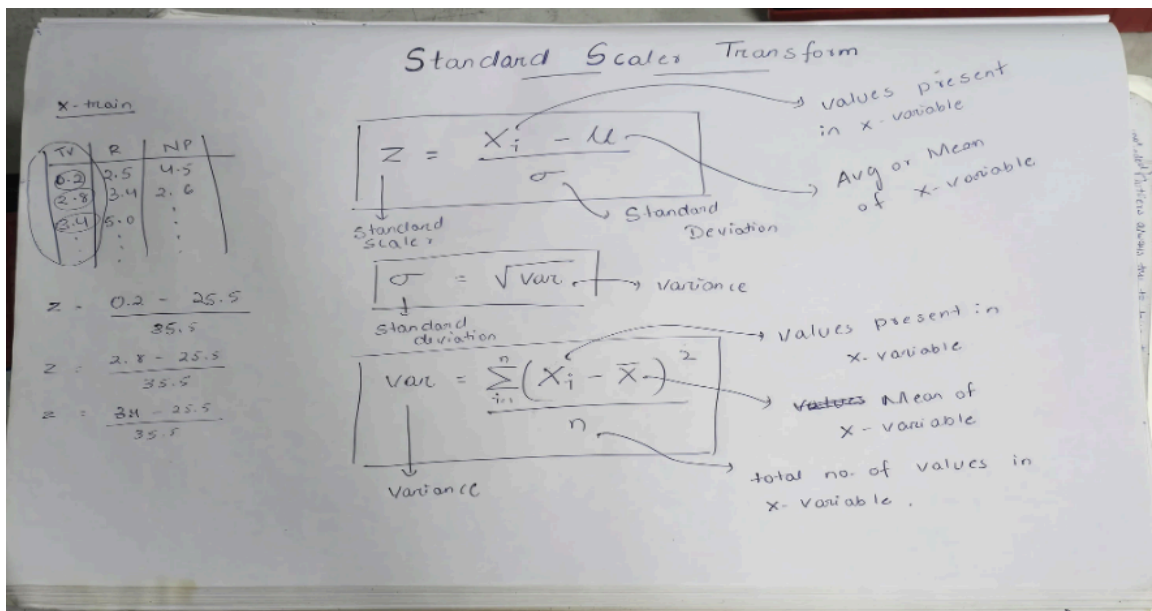 Standard Scaler Transform
X-train
TV R NP
0.2 2.5 4.5
2.8 3.4 2.6
3.4 5.0
Z = 0.2 - 25.5
35.5
Z = 2.8 - 25.5
35.5
Z = 34 - 25.5
35.5
Z = Xi - μ
σ
Standard
Scaler
Standard
Deviation
values present
in x-variable
Avg or Mean
of x-variable
σ = √var
variance
Standard
deviation
var = n∑i=1 (Xi - X̄)²
n
Variance
values present in
x-variable
values Mean of
x-variable
total no. of values in
x-variable.